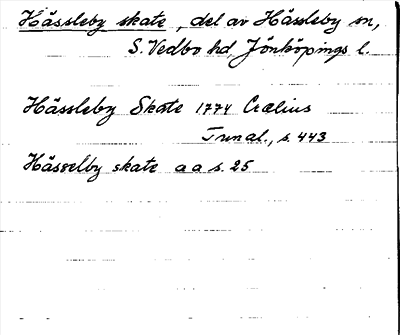 Hässleby skate, del av Hässleby sn,
S. Vedbo hd, Jönköpings l.
Hässleby Skate 1774 Crælius
Tunal., s. 443
Hässelby skate a a s. 25